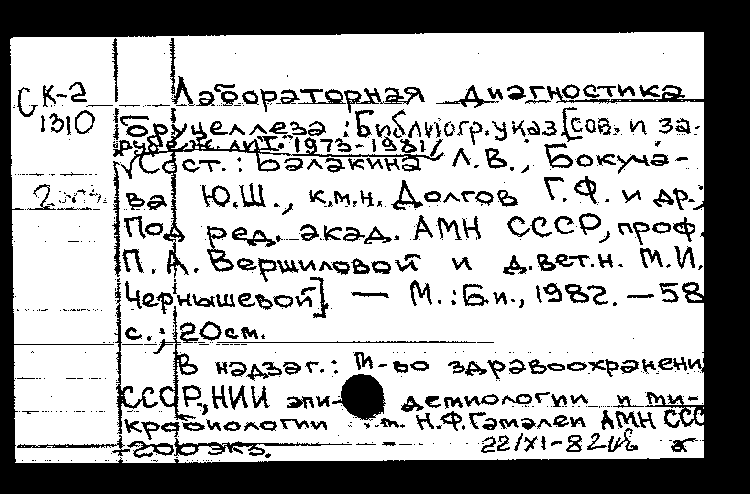 СК-2
1310
2 экз.
Лабораторная диагностика
бруцеллеза : Библиогр. указ. [сов. и за-
рубеж. лит. 1973-1981/
Сост.: Балакина Л.В., Бокуча-
ва Ю.Ш., к.м.н. Долгов Г.Ф. и др.;
Под ред. акад. АМН СССР, проф.
П.А. Вершиловой и д.вет.н. М.И.
Чернышевой]. — М.: Б.и., 1982. — 58
с.; 20см.
В надзаг.: М-во здравоохранени
СССР, НИИ эпи- демиологии и ми-
кробиологии им. Н.Ф. Гамалеи АМН ССС
-200 экз. 22/XI-82